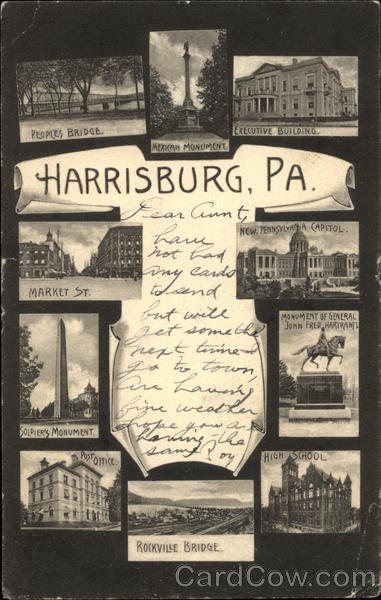 PEOPLES BRIDGE.
MEXICAN MONUMENT.
EXECUTIVE BUILDING.
HARRISBURG, PA.
Dear Aunt,
have
not had
any cards
to send
but will
get some the
next time I
go to town
are having
fine weather
hope you are
having the
same Roy
MARKET ST.
NEW PENNSYLVANIA CAPITOL.
SOLDIER'S MONUMENT.
MONUMENT OF GENERAL
JOHN FRED. HARTRANFT
POST
OFFICE.
ROCKVILLE BRIDGE.
HIGH SCHOOL
CardCow.com